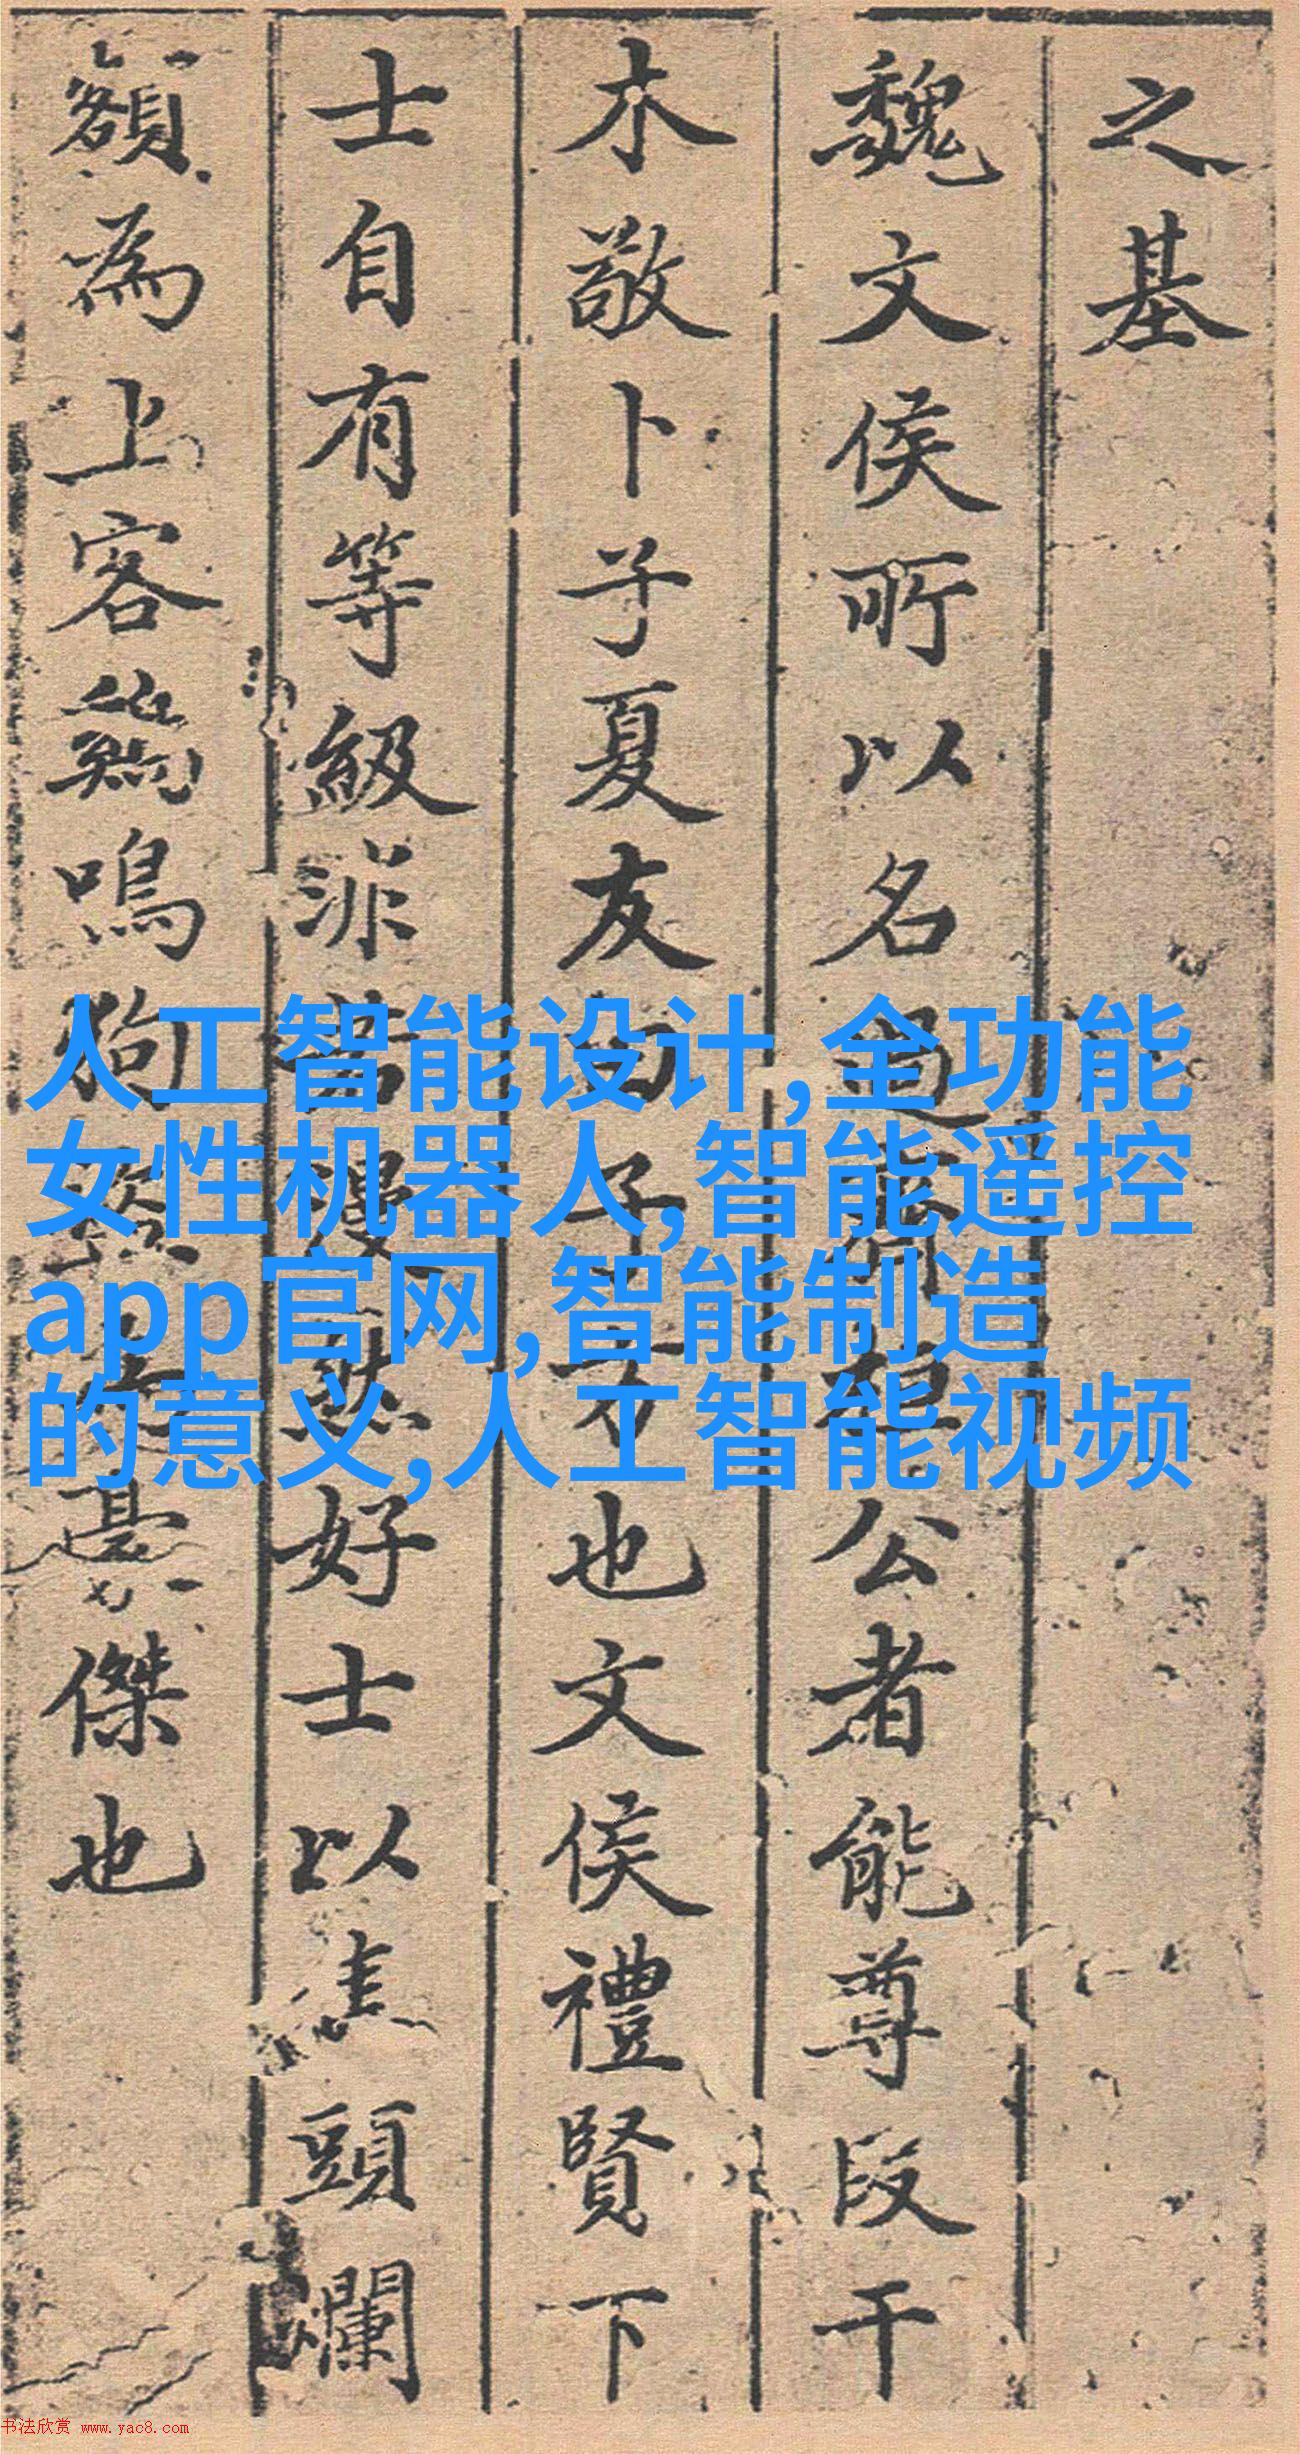 之基
魏文侯所以名過齊桓公者能尊段干
木敬卜子夏友田子方也文侯禮賢下
士自有等級非若漫然好士以焦頭爛
額為上客雞鳴狗盜豪傑也
人工智能设计,全功能
女性机器人,智能遥控
app官网,智能制造
的意义,人工智能视频
书法欣赏 www.yac8.com